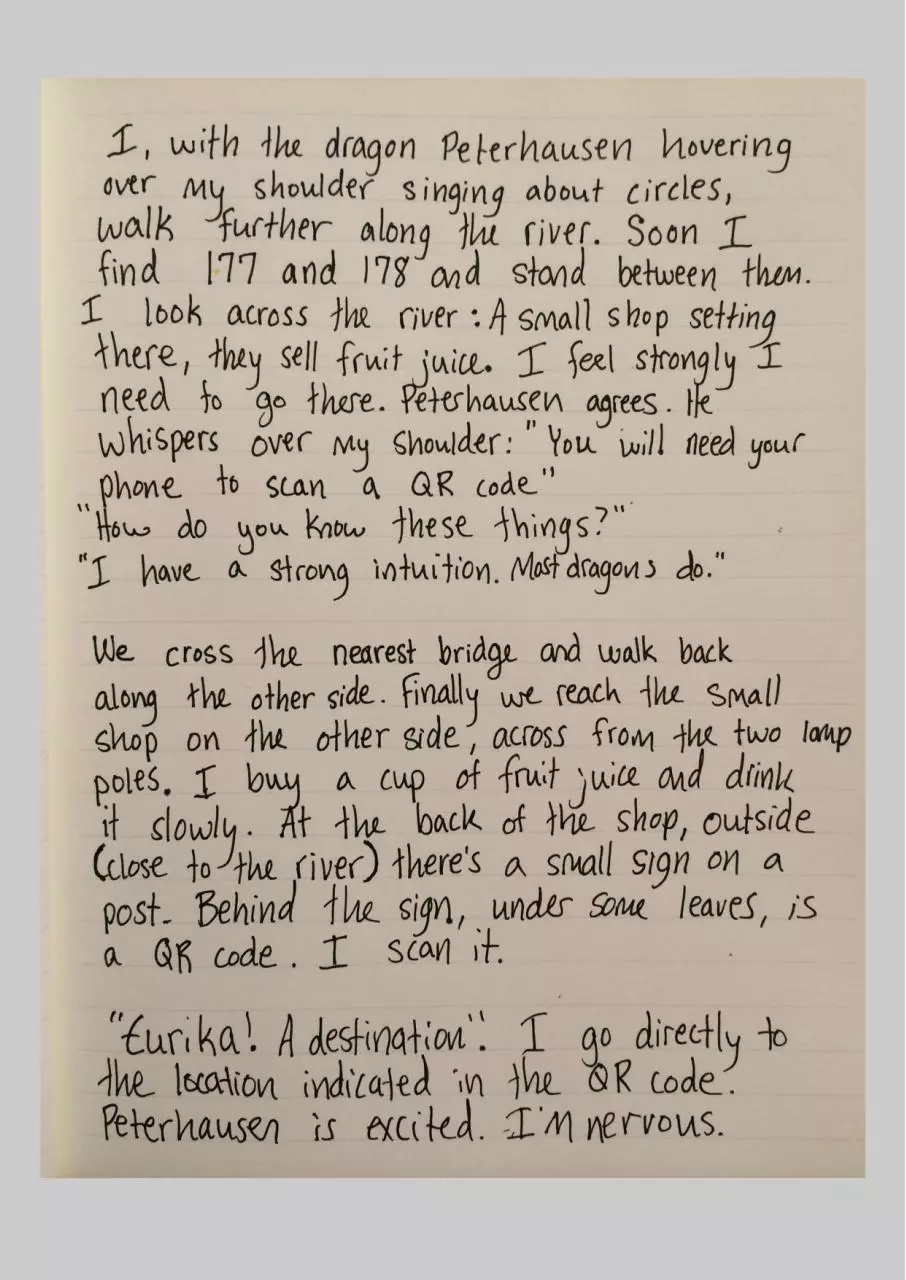 I, with the dragon Peterhausen hovering
over my shoulder singing about circles,
walk further along the river. Soon I
find 177 and 178 and stand between them.
I look across the river: A small shop setting
there, they sell fruit juice. I feel strongly I
need to go there. Peterhausen agrees. He
whispers over my shoulder: "You will need your
phone to scan a QR code"
"How do you know these things?"
"I have a strong intuition. Most dragons do."
We cross the nearest bridge and walk back
along the other side. Finally we reach the small
shop on the other side, across from the two lamp
poles. I buy a cup of fruit juice and drink
it slowly. At the back of the shop, outside
(close to the river) there's a small sign on a
post. Behind the sign, under some leaves, is
a QR code. I scan it.
"Eurika! A destination". I go directly to
the location indicated in the QR code.
Peterhausen is excited. I'm nervous.